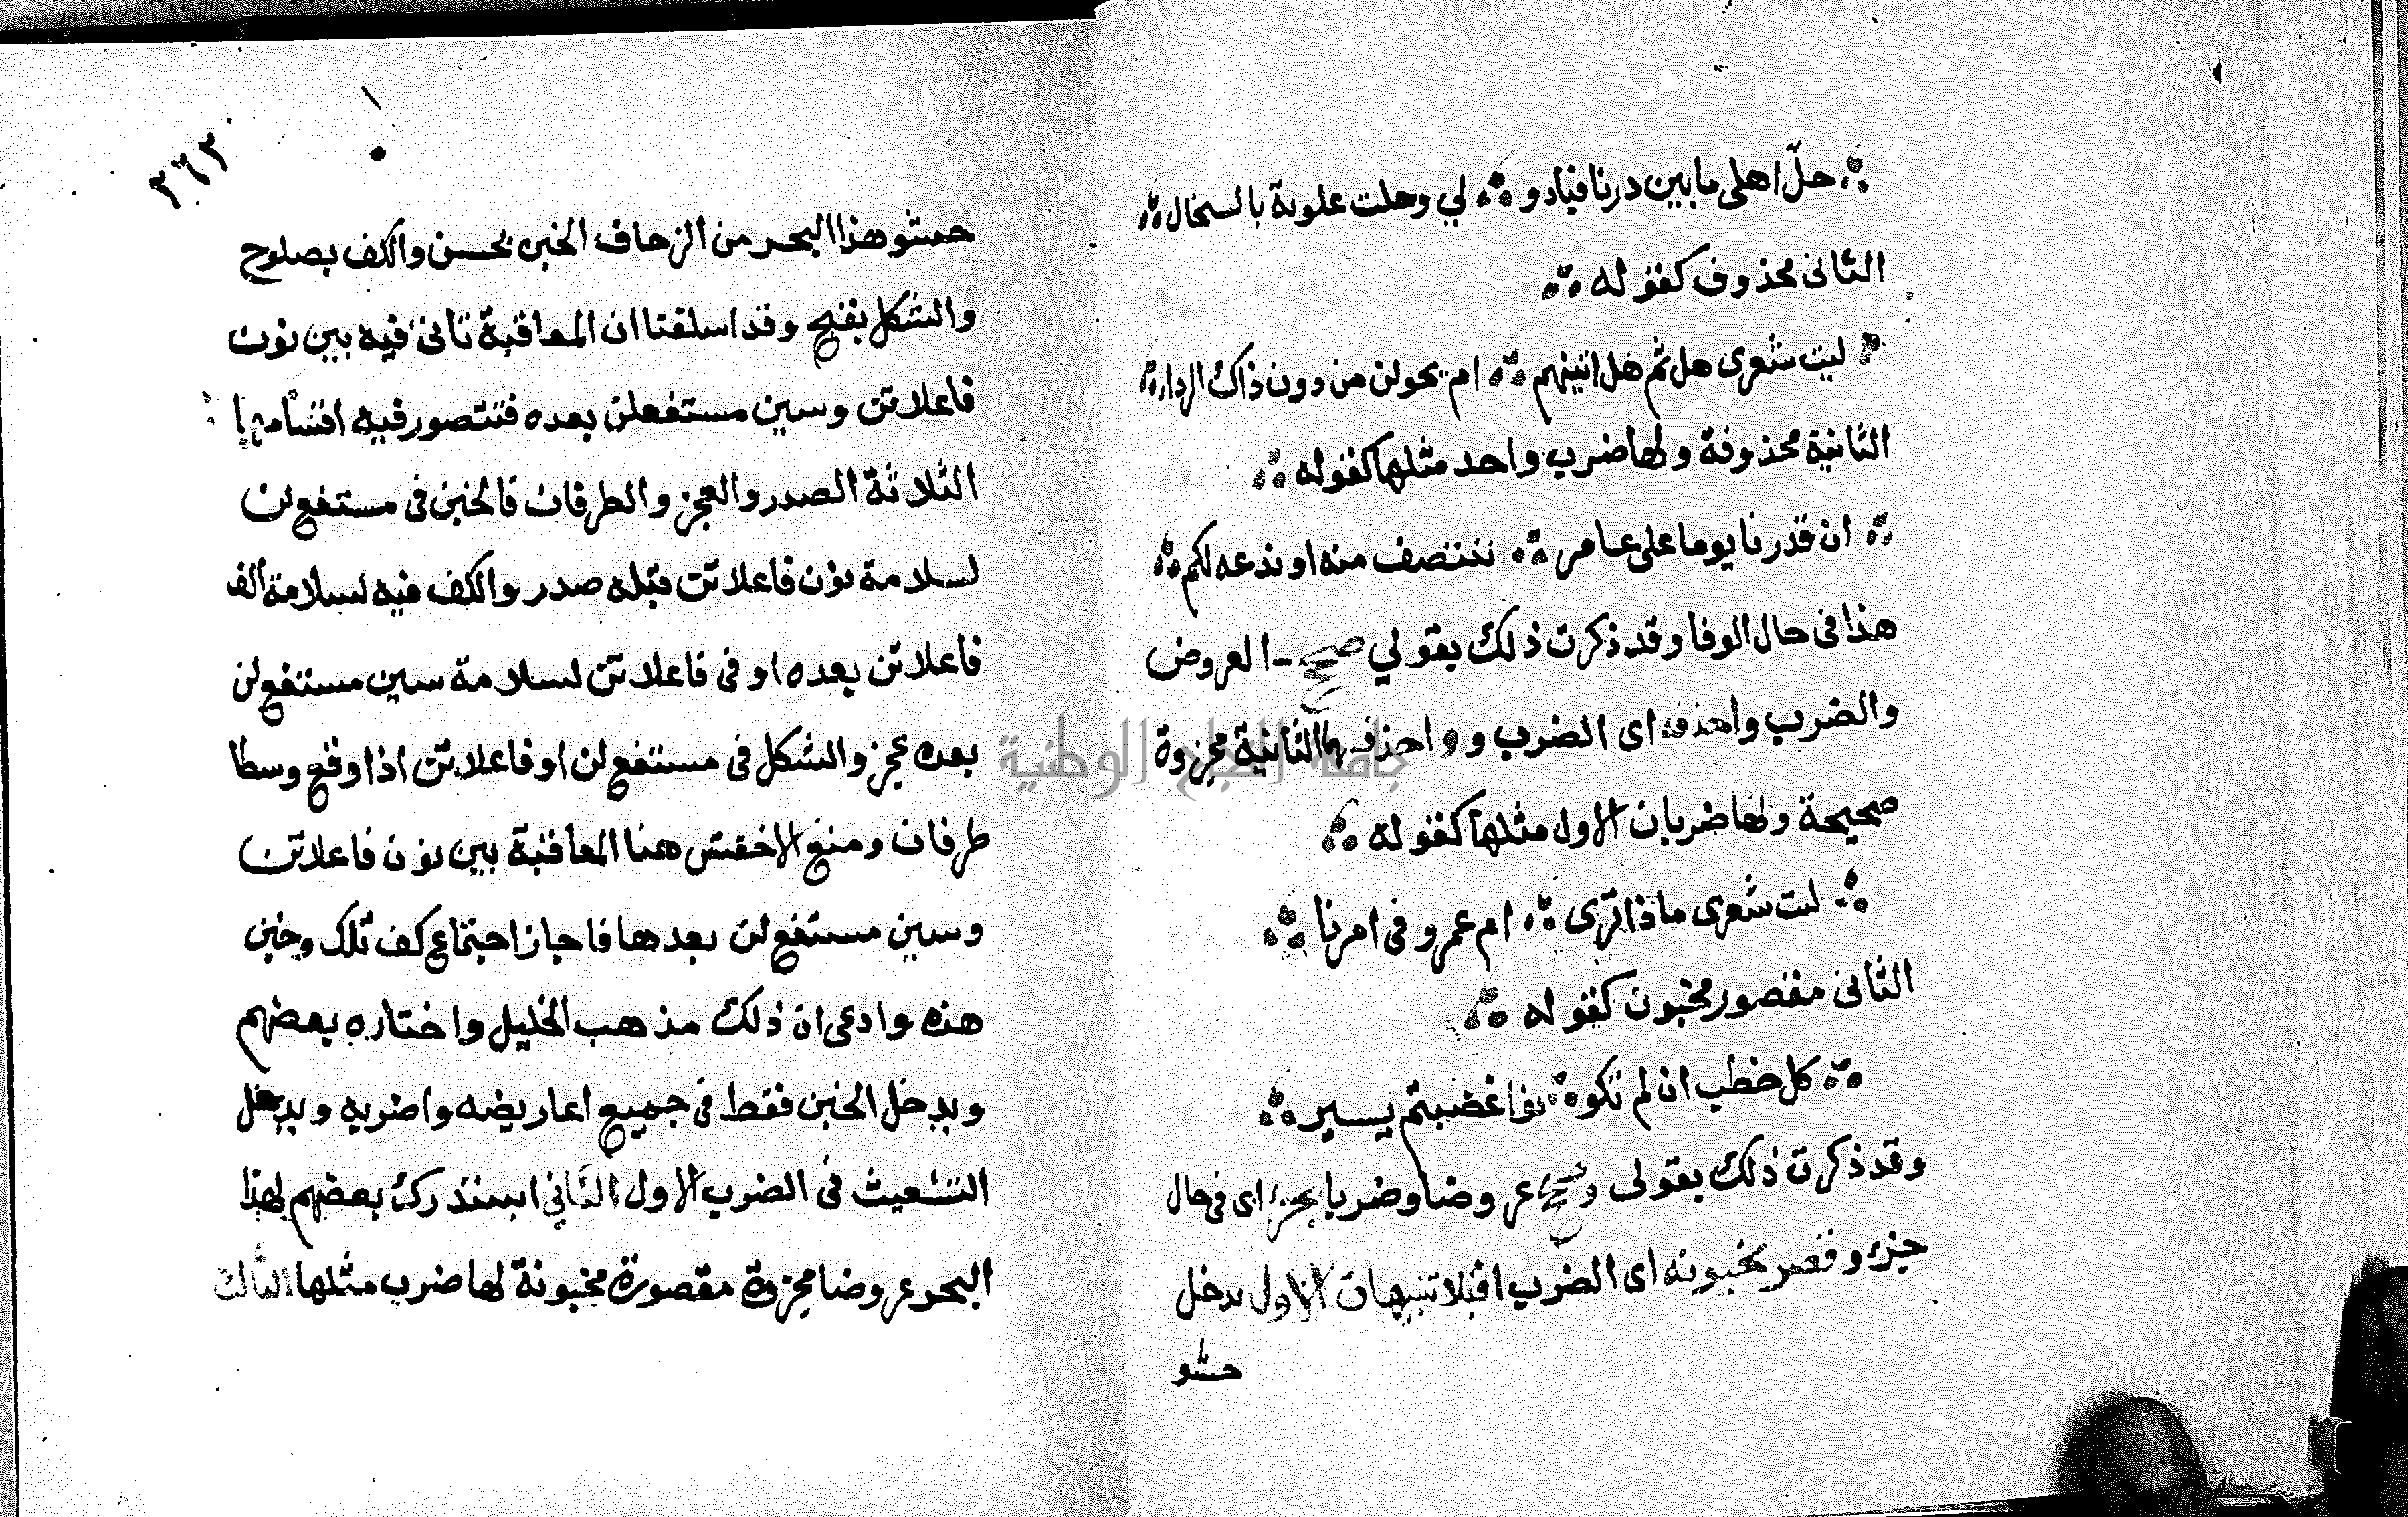 حلّ اهلى ما بين درنا فبادو لي وحلت علوية بالسخال
الثانى محذوف كقوله
ليت شعرى هل ثم هل اتينهم ام يحولن من دون ذاك الردا
الثانية محذوفة ولها ضرب واحد مثلها كقوله
ان قدرنا يوما على عامر ننتصف منه او ندعه لكم
هذا فى حال الوفا وقد ذكرت ذلك بقولي صحح العروض
والضرب واحذفه اى الضرب و واحذفهما الثانية مجزوة
صحيحة ولها ضربان الاول مثلها كقوله
ليت شعرى ماذا ترى ام عمرو فى امرنا
الثانى مقصور مخبون كقوله
كل خطب ان لم تكو نوا غضبتم يسير
وقد ذكرت ذلك بقولى وصحح عروضا وضربا بجزء اى فى حال
جزء وقصر بخبونه اى الضرب اقبلا تنبيهات الاول يدخل
حشو
٢٦٢
حشو هذا البحر من الزحاف الخبن بحسن والكف بصلوح
والشكل بقبح وقد اسلفنا ان المعاقبة تاتى فيه بين نون
فاعلاتن وسين مستفعلن بعده فتتصور فيه اقسامها
الثلاثة الصدر والعجز والطرفان فالخبن فى مستفع لن
لسلامة نون فاعلاتن قبله صدر والكف فيه لسلامة الف
فاعلاتن بعده او فى فاعلاتن لسلامة سين مستفع لن
بعده عجز والشكل فى مستفع لن او فاعلاتن اذا وقع وسطا
طرفان ومنع الاخفش هنا المعاقبة بين نون فاعلاتن
وسين مستفع لن بعدها فاجاز اجتماع كف تلك وخبن
هذه وادعى ان ذلك مذهب الخليل واختاره بعضهم
ويدخل الخبن فقط فى جميع اعاريضه واضربه ويدخل
التشعيث فى الضرب الاول الثاني استدرك بعضهم لهذا
البحر عروضا مجزوة مقصورة مخبونة لها ضرب مثلها الثالث
جامعة النجاح الوطنية